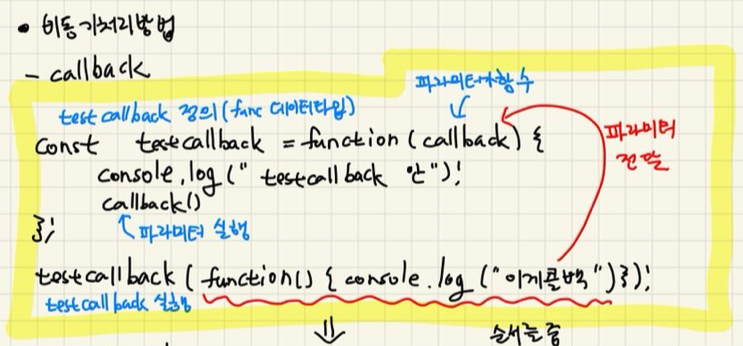 • 비동기처리방법
- callback
파라미터가함수
testcallback 정의(func 데이터타입)
const testcallback = function (callback) {
console.log(" testcallback 안");
callback()
};
파라미터 실행
파라미터
전달
testcallback ( function() { console.log ("이게콜백")});
testcallback 실행
순서를 줌